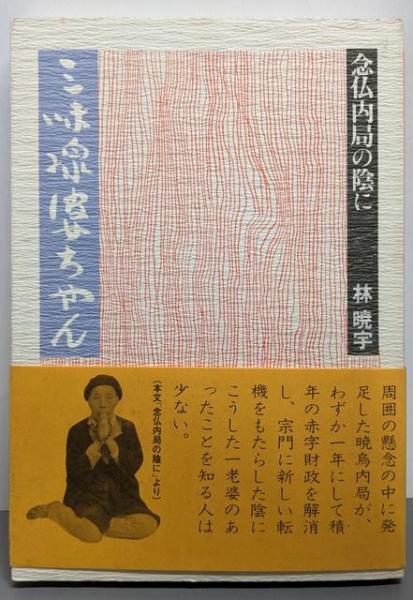 念仏内局の陰に
林 暁宇
三味線婆ちゃん
周囲の懸念の中に発
足した暁烏内局が、
わずか一年にして積
年の赤字財政を解消
し、宗門に新しい転
機をもたらした陰に
こうした一老婆のあ
ったことを知る人は
少ない。
(本文、「念仏内局の陰に」より)